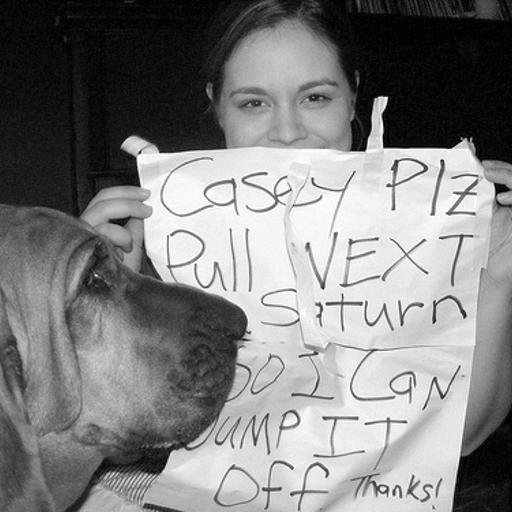 Casey Plz
Pull NEXT
Saturn
SO I CaN
JUMP IT
Off Thanks!